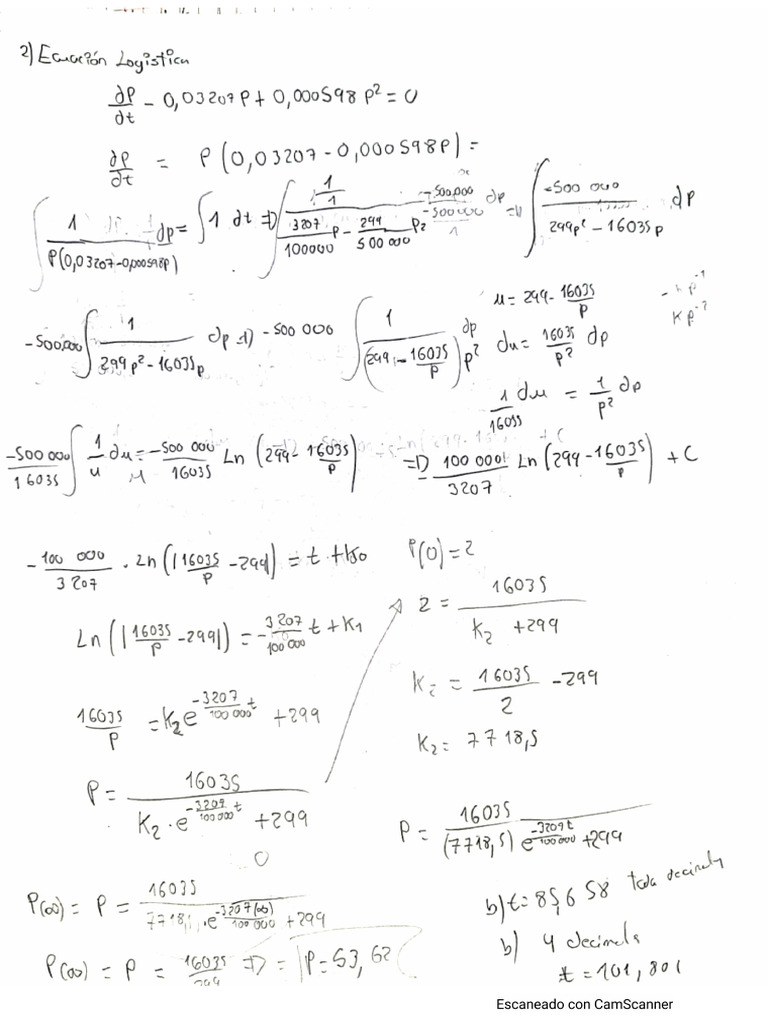 2) Ecuación Logistica
∂P/∂t - 0,03207P + 0,000598 P² = 0
∂P/∂t = P(0,03207 - 0,000598P) =
∫ 1/(P(0,03207-0,000598P)) dP = ∫ 1 dt => ∫ (1/1)/(3207/100000 P - 299/500 000 P2) (-500,000)/(-500 000/1) dp => ∫ -500 000/(299p² - 16035p) dp
-500,000 ∫ 1/(299p² - 16035p) dp => -500 000 ∫ 1/((299 - 16035/P) p²) dp
u = 299 - 16035/P
du = 16035/p² dp
1/16035 du = 1/p² dp
-500 000/16035 ∫ 1/u du = -500 000/16035 Ln (299 - 16035/P) => 100 000/3207 Ln (299 - 16035/P) + C
-100 000/3207 . Ln (|16035/P - 299|) = t + K0
Ln (|16035/P - 299|) = -3207/100 000 t + K1
16035/P = K2 e^(-3207/100 000 t) + 299
P = 16035/(K2 . e^(-3207/100 000 t) + 299)
P(0) = 2
2 = 16035/(K2 + 299)
K2 = 16035/2 - 299
K2 = 7718,5
P = 16035/((7718,5) e^(-3207t/100 000) + 299)
0
P(∞) = P = 16035/(7718, . e^(-3207(∞)/100 000) + 299)
P(∞) = P = 16035/299 => = P = 53,62
b) t = 85,658
b) 4 decimals
t = 101,801
Escaneado con CamScanner